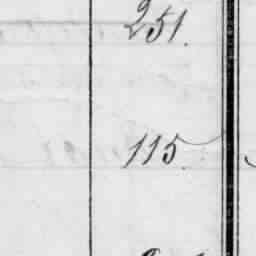 251.
115.